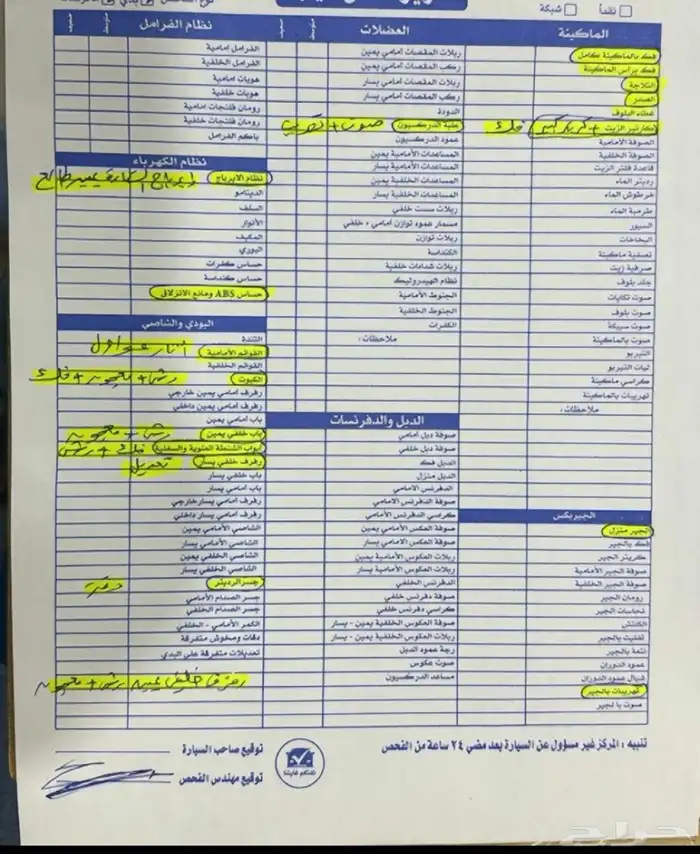 نقداً
شبكة
الماكينة
فك بالماكينة كامل
فك براس الماكينة
الثلاجة
الصدر
غطاء البلوف
كارتير الزيت + كرنك كيس فك
الصوفة الامامية
الصوفة الخلفية
قاعدة فلتر الزيت
رديتر الماء
خرطوش الماء
طرمبة الماء
السيور
البخاخات
تصفية ماكينة
صرفية زيت
جلد بلوف
صوت تكايات
صوت بلوف
صوت سبيكة
صوت بالماكينة
التيربو
ليات التيربو
كراسي ماكينة
تهريبات بالماكينة
ملاحظات :
الجيربكس
الجير منزل
فك بالجير
كرتير الجير
صوفة الجير الأمامية
صوفة الجير الخلفية
رومان الجير
نحاسات الجير
الكلتش
تفتيت بالجير
نتعة بالجير
عمود الدوران
شيال عمود الدوران
تهريبات بالجير
صوت بالجير
العضلات
ربلات المقصات امامي يمين
ركب المقصات امامي يمين
ربلات المقصات امامي يسار
ركب المقصات امامي يسار
الدودة
علبة الدركسيون صوت + تهريب
عمود الدركسيون
المساعدات الأمامية يمين
المساعدات الأمامية يسار
المساعدات الخلفية يمين
المساعدات الخلفية يسار
ربلات ست خلفي
مسمار عمود توازن امامي + خلفي
ربلات توازن
الكنداسة
ربلات شدادات خلفية
نظام الهيدروليك
الجنوط الأمامية
الجنوط الخلفية
الكفرات
ملاحظات :
الدبل والدفرنسات
صوفة دبل امامي
صوفة دبل خلفي
الدبل فك
الدبل منزل
الدفرنس الامامي
صوفة الدفرنس الامامي
كراسي الدفرنس الأمامي
صوفة العكس الأمامي يمين
صوفة العكس الامامي يسار
ربلات العكوس الأمامية يمين
ربلات العكوس الأمامية يسار
الدفرنس الخلفي
صوفة دفرنس خلفي
كراسي دفرنس خلفي
صوفة العكوس الخلفية يمين - يسار
ربلات العكوس الخلفية يمين - يسار
رجة عمود الدبل
صوت عكوس
مساعد الدركسيون
نظام الفرامل
الفرامل امامية
الفرامل الخلفية
هوبات امامية
هوبات خلفية
رومان فلنجات امامية
رومان فلنجات خلفية
باكم الفرامل
نظام الكهرباء
نظام الايرباج
الدينامو
السلف
الأنوار
المكيف
البوري
حساس كفرات
حساس كنداسة
حساس ABS ومانع الانزلاق
البودي والشاصي
الشندة
القوائم الأمامية
القوائم الخلفية
الكبوت رش + معجون + فك
رفرف امامي يمين خارجي
رفرف امامي يمين داخلي
باب امامي يمين
باب خلفي يمين رش + معجون
ابواب الشنطة العلوية والسفلية فك + رش
رفرف خلفي يسار تعديل
باب خلفي يسار
باب امامي يسار
رفرف امامي يسار خارجي
رفرف امامي يسار داخلي
الشاصي الأمامي يمين
الشاصي الأمامي يسار
الشاصي الخلفي يمين
الشاصي الخلفي يسار
جسر الرديتر
جسر الصدام الأمامي
جسر الصدام الخلفي
الكمر الأمامي - الخلفي
دقات وخدوش متفرقة
تعديلات متفرقة على البدي
رفرف خلفي يمين رش + معجون
تنبيه : المركز غير مسؤول عن السيارة بعد مضي ٢٤ ساعة من الفحص
توقيع صاحب السيارة
توقيع مهندس الفحص
حراج